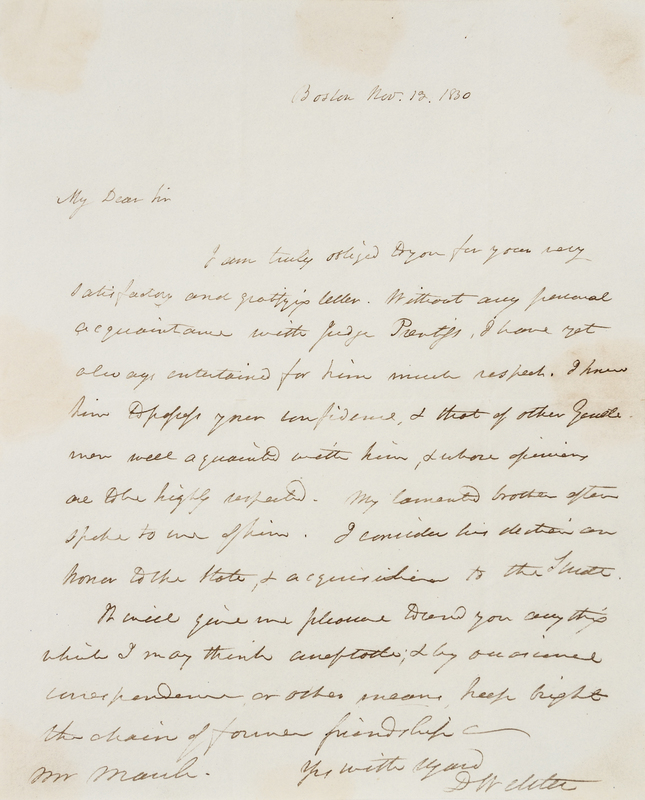 Boston Nov. 13. 1830
My Dear Sir
I am truly obliged to you for your very
satisfactory and gratifyg letter. Without any personal
acquaintance with Judge Prentiss, I have yet
always entertained for him much respect. I knew
him to possess your confidence, & that of other Gentle-
men well acquainted with him, & whose opinions
are to be highly respected. My lamented brother often
spoke to me of him. I consider his election an
honor to the State, & acquisition to the Senate.
It will give me pleasure to send you any thg
which I may think acceptable; & by occasional
correspondence, or other means, keep bright
the chain of former friendship
Yrs with regard
D Webster
Mr Marsh.